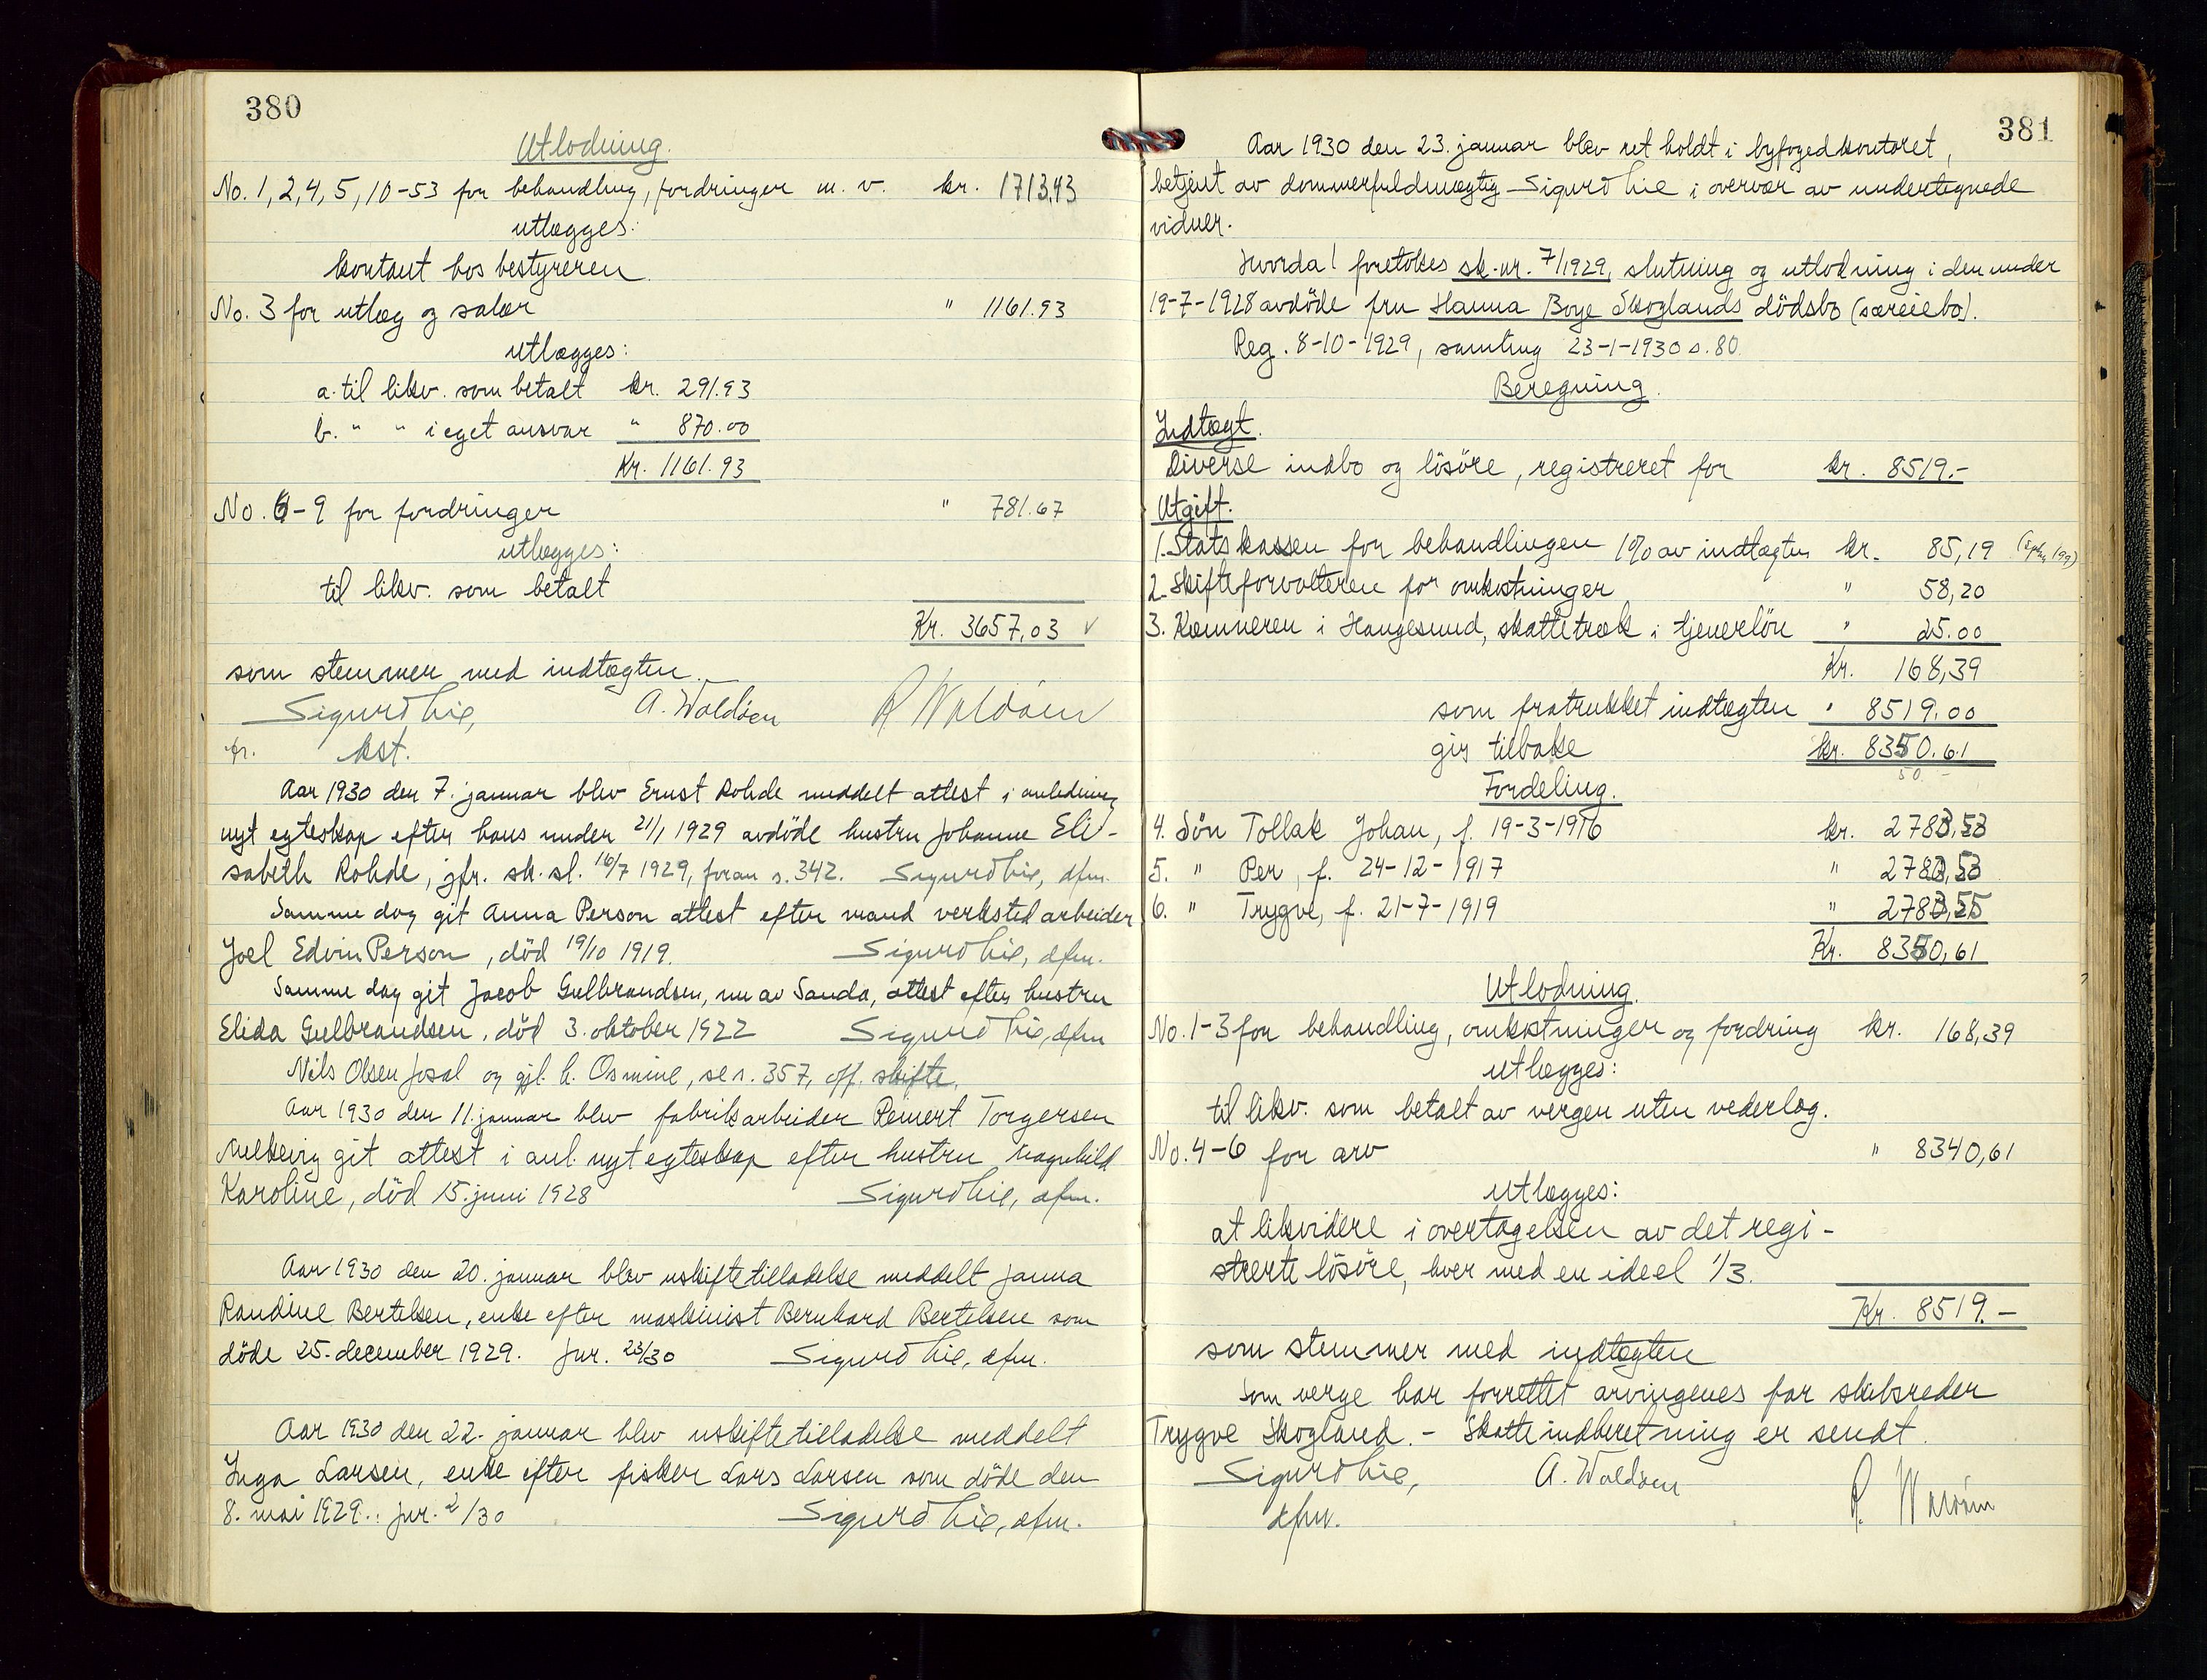 380
Utlodning.
No. 1, 2, 4, 5, 10-53 for behandling, fordringer m. v. kr. 1713,43
utlægges:
kontant hos bestyreren.
No. 3 for utlæg og salær " 1161.93
utlægges:
a. til likv. som betalt kr. 291.93
b. " " i eget ansvar " 870.00
Kr. 1161.93
No. 6-9 for fordringer " 781.67
utlægges:
til likv. som betalt
Kr. 3657,03 ✓
som stemmer med indtægten.
Sigurd Lie, A. Waldøen R. Waldøen
kst.
Aar 1930 den 7. januar blev Ernst Rohde meddelt attest i anledning
nyt egteskap efter hans under 21/1 1929 avdöde hustru Johanne Eli-
sabeth Rohde, jfr. sk. sl. 16/7 1929, foran s. 342. Sigurd Lie, dfm.
Samme dag git Anna Person attest efter mand verkstedarbeider
Joel Edvin Person, död 19/10 1919. Sigurd Lie, dfm.
Samme dag git Jacob Gulbrandsen, nu av Sauda, attest efter hustru
Elida Gulbrandsen, död 3. oktober 1922 Sigurd Lie, dfm
Nils Olsen Josal og gjl. h. Osmine, se s. 357, off. skifte.
Aar 1930 den 11. januar blev fabrikarbeider Reinert Torgersen
git attest i anl. nyt egteskap efter hustru Magnhild
Karoline, död 15. juni 1928 Sigurd Lie, dfm.
Aar 1930 den 20. januar blev uskiftetilladelse meddelt Janna
Randine Bertelsen, enke efter maskinist Bernhard Bertelsen som
döde 25. december 1929. Jnr. 23/30 Sigurd Lie, dfm.
Aar 1930 den 22. januar blev uskiftetilladelse meddelt
Inga Larsen, enke efter fisker Lars Larsen som döde den
8. mai 1929. Jnr. 2/30 Sigurd Lie, dfm.
381
Aar 1930 den 23. januar blev ret holdt i byfogedkontoret,
betjent av dommerfuldmægtig Sigurd Lie i overvær av undertegnede
vidner.
Hvorda! foretokes sk.nr. 7/1929, slutning og utlodning i den under
19-7-1928 avdöde fru Hanna Boye Skoglands dödsbo (særeiebo).
Reg. 8-10-1929, samling 23-1-1930 s. 80.
Beregning.
Indtægt.
Diverse indbo og lösöre, registreret for kr. 8519.-
Utgift.
1. Statskassen for behandlingen 1% av indtægten kr. 85,19
2. Skifteforvalteren for omkostninger " 58,20
3. Kæmneren i Haugesund, skattetræk i tjenerlön " 25.00
Kr. 168,39
som fratrukket indtægten " 8519.00
gir tilbake kr. 8350.61
50
Fordeling.
4. Sön Tollak Johan, f. 19-3-1916 kr. 2783,53
5. " Per, f. 24-12-1917 " 2783,53
6. " Trygve, f. 21-7-1919 " 2783,55
Kr. 8350,61
Utlodning.
No. 1-3 for behandling, omkostninger og fordring kr. 168,39
utlægges:
til likv. som betalt av vergen uten vederlag.
No. 4-6 for arv " 8340,61
utlægges:
at likvidere i overtagelsen av det regi-
strerte lösöre, hver med en ideel 1/3.
Kr. 8519.-
som stemmer med indtægten
Som verge har forrettet arvingenes far skibsreder
Trygve Skogland. - Skatteindberetning er sendt.
Sigurd Lie, A. Waldøen R. Waldøen
dfm.